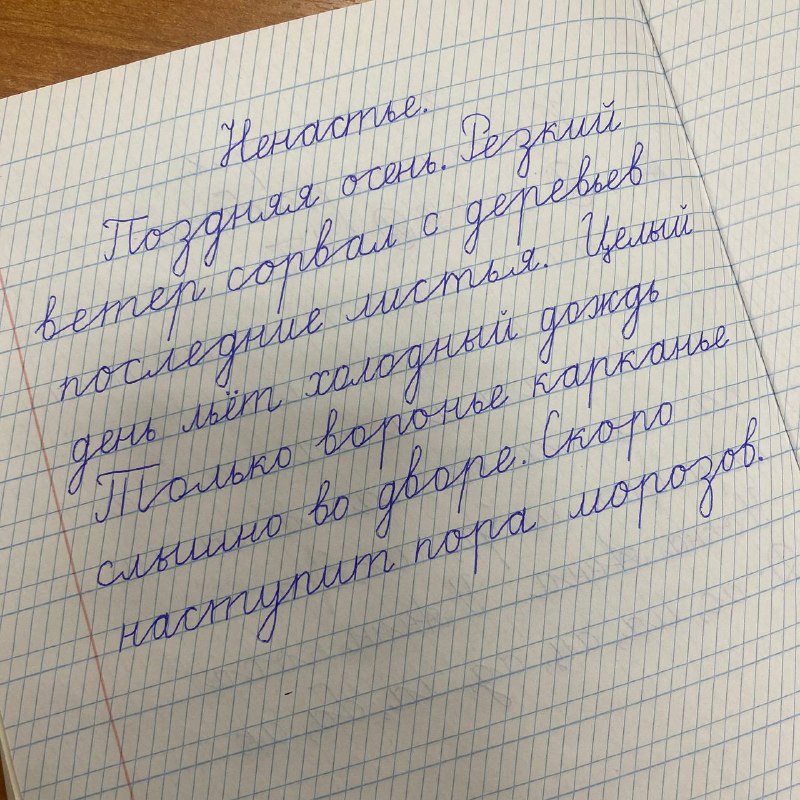 Ненастье.
Поздняя осень. Резкий
ветер сорвал с деревьев
последние листья. Целый
день льёт холодный дождь
Только воронье карканье
слышно во дворе. Скоро
наступит пора морозов.